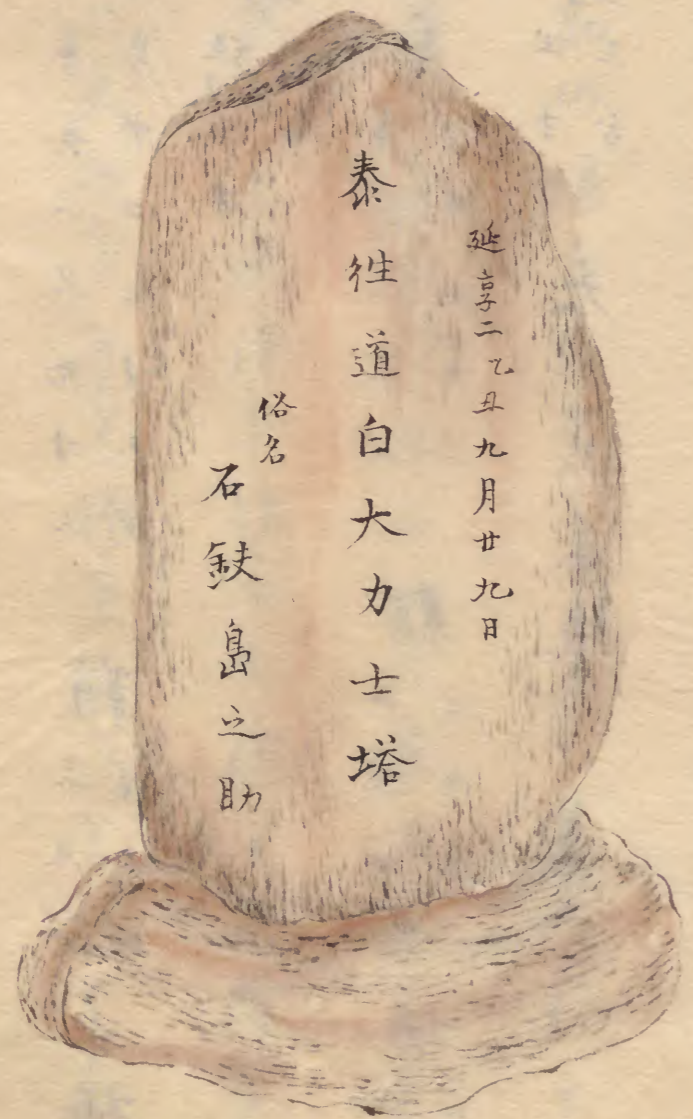 延享二乙丑九月廿九日
泰徃道白大力士塔
俗名
石鈘島之助